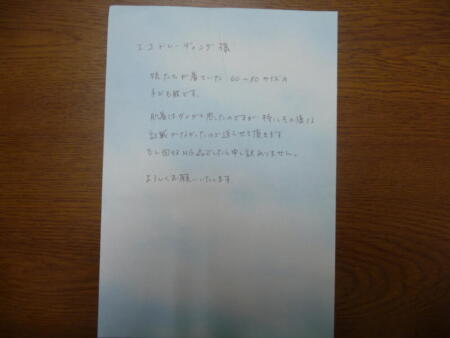 エコトレーディング様
娘たちが着ていた 60〜80サイズの
子ども服です。
肌着はダメかと思ったのですが 特にその様な
記載がなかったので送らせて頂きます
もし回収NG品でしたら申し訳ありません。
よろしくお願いいたします